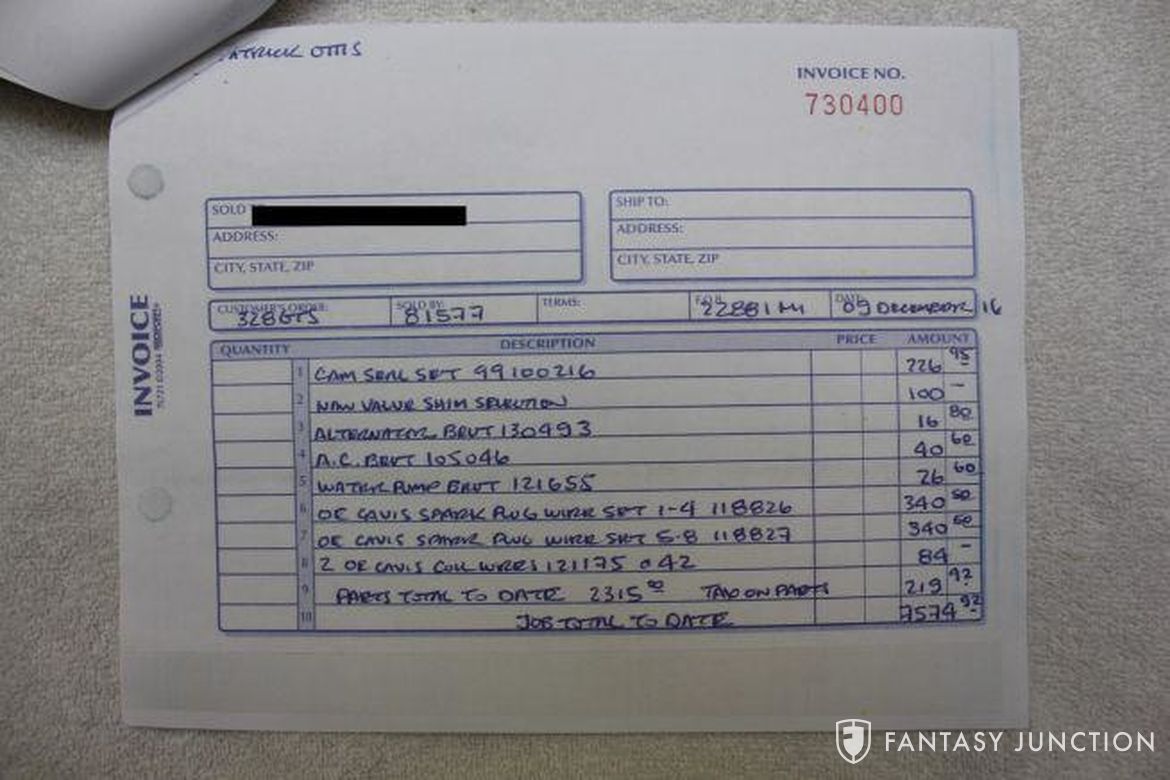 ATRICK OTTIS
INVOICE NO.
730400
SOLD
ADDRESS:
CITY, STATE, ZIP
SHIP TO:
ADDRESS:
CITY, STATE, ZIP
CUSTOMER'S ORDER: 328GTS
SOLD BY: 81577
TERMS:
F.O.B. 22881 MI
DATE 09 DECEMBER 16
INVOICE
QUANTITY DESCRIPTION PRICE AMOUNT
1 CAM SEAL SET 99100216 226 95
2 NEW VALVE SHIM SELECTION 100 –
3 ALTERNATOR BELT 130493 16 80
4 A.C. BELT 105046 40 60
5 WATER PUMP BELT 121655 26 60
6 OE CAVIS SPARK PLUG WIRE SET 1-4 118826 340 50
7 OE CAVIS SPARK PLUG WIRE SET 5-8 118827 340 50
8 2 OE CAVIS COIL WIRES 121175 @ 42 84 –
9 PARTS TOTAL TO DATE 2315 00 TAX ON PARTS 219 92
10 JOB TOTAL TO DATE 7574 92
FANTASY JUNCTION